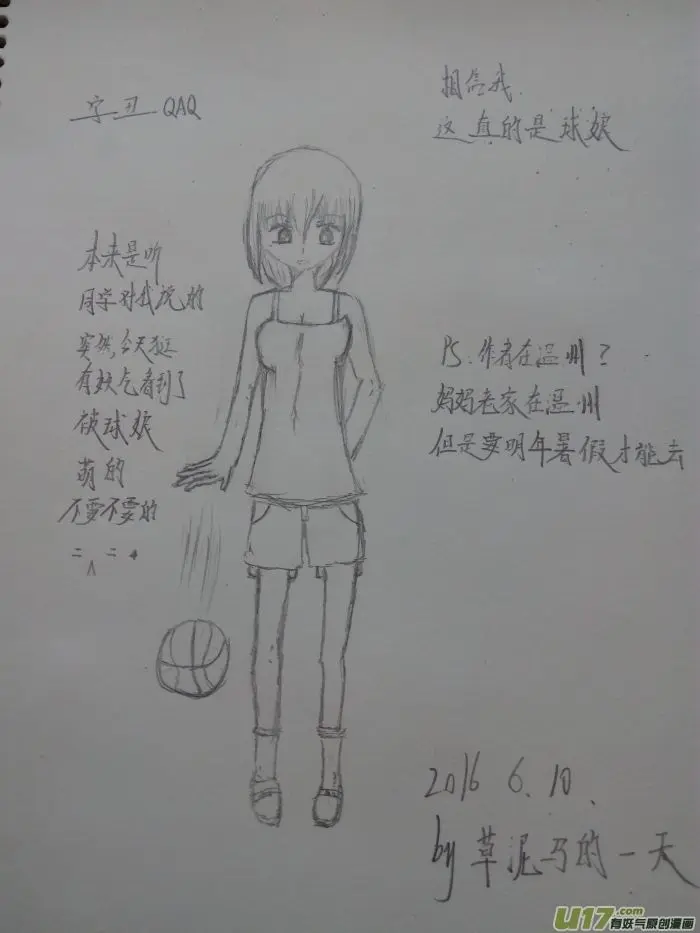 字丑 QAQ
相信我
这真的是球娘
本来是听
同学对我说的
突然今天逛
有妖气看到了
被球娘
萌的
不要不要的
PS:作者在温州?
妈妈老家在温州
但是要明年暑假才能去
2016 6.10.
by 草泥马的一天
U17.com
有妖气原创漫画